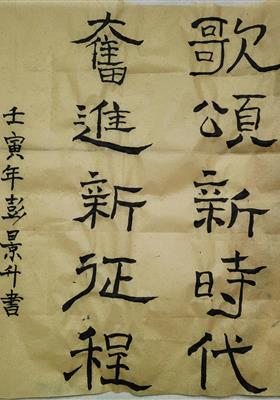 歌頌新時代
奮進新征程
壬寅年彭景升書